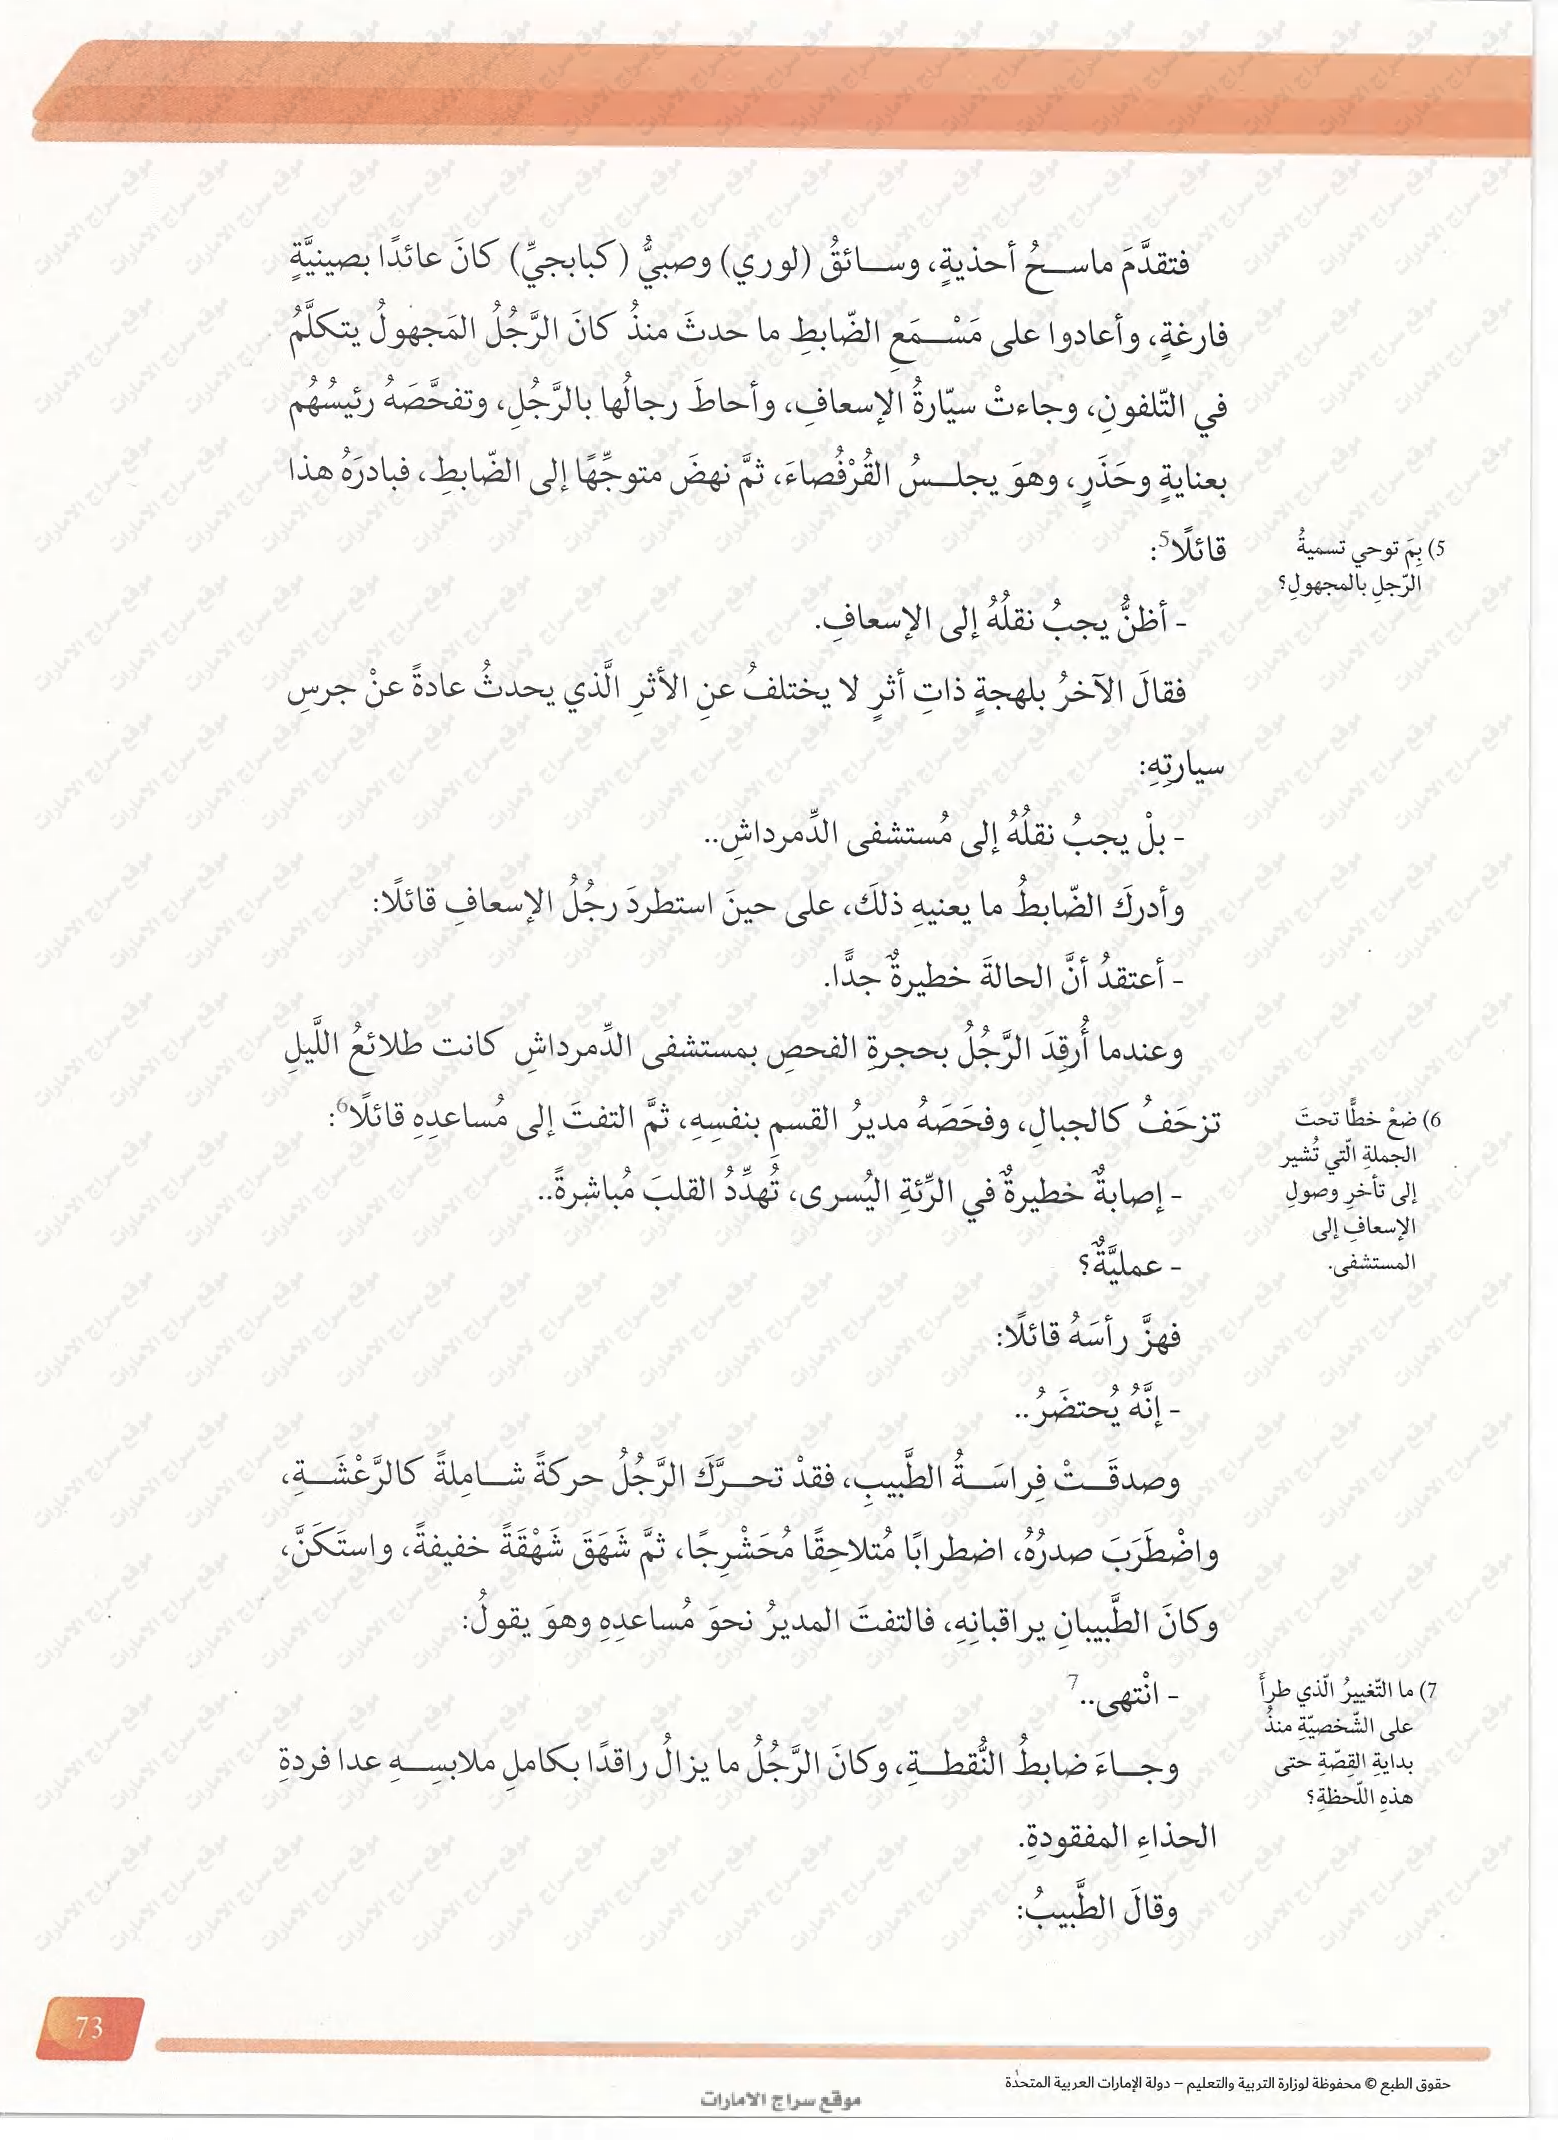 فتقدَّمَ ماسـحُ أحذيةٍ، وسـائقُ (لوري) وصبيُّ (كبابجيِّ) كانَ عائدًا بصينيَّةٍ
فارغةٍ، وأعادوا على مَسْـمَعِ الضّابطِ ما حدثَ منذُ كانَ الرَّجُلُ المَجهولُ يتكلَّمُ
في التّلفونِ، وجاءتْ سيّارةُ الإسعافِ، وأحاطَ رجالُها بالرَّجُلِ، وتفحَّصَهُ رئيسُهُم
بعنايةٍ وحَذَرٍ، وهوَ يجلـسُ القُرْفُصاءَ، ثمَّ نهضَ متوجِّهًا إلى الضّابطِ، فبادرَهُ هذا
قائلًا5:
5) بِمَ توحي تسميةُ
الرّجلِ بالمجهولِ؟
- أظنُّ يجبُ نقلُهُ إلى الإسعافِ.
فقالَ الآخرُ بلهجةٍ ذاتِ أثرٍ لا يختلفُ عنِ الأثرِ الَّذي يحدثُ عادةً عنْ جرسِ
سيارتِهِ:
- بلْ يجبُ نقلُهُ إلى مُستشفى الدِّمرداشِ..
وأدركَ الضّابطُ ما يعنيهِ ذلكَ، على حينَ استطردَ رجُلُ الإسعافِ قائلًا:
- أعتقدُ أنَّ الحالةَ خطيرةٌ جدًّا.
وعندما أُرقِدَ الرَّجُلُ بحجرةِ الفحصِ بمستشفى الدِّمرداشِ كانت طلائعُ اللَّيلِ
تزحَفُ كالجبالِ، وفحَصَهُ مديرُ القسمِ بنفسِهِ، ثمَّ التفتَ إلى مُساعدِهِ قائلًا6:
6) ضعْ خطًّا تحتَ
الجملةِ الّتي تُشير
إلى تأخرِ وصولِ
الإسعافِ إلى
المستشفى.
- إصابةٌ خطيرةٌ في الرِّئةِ اليُسرى، تُهدِّدُ القلبَ مُباشرةً..
- عمليَّةٌ؟
فهزَّ رأسَهُ قائلًا:
- إنَّهُ يُحتضَرُ..
وصدقَـتْ فِراسَـةُ الطَّبيبِ، فقدْ تحـرَّكَ الرَّجُلُ حركةً شـامِلةً كالرَّعْشَـةِ،
واضْطَرَبَ صدرُهُ، اضطرابًا مُتلاحِقًا مُحَشْرِجًا، ثمَّ شَهَقَ شَهْقَةً خفيفةً، واستَكَنَّ،
وكانَ الطَّبيبانِ يراقبانِهِ، فالتفتَ المديرُ نحوَ مُساعدِهِ وهوَ يقولُ:
- انْتهى..7
7) ما التّغييرُ الّذي طرأَ
على الشّخصيّةِ منذُ
بدايةِ القِصّةِ حتى
هذهِ اللّحظةِ؟
وجـاءَ ضابطُ النُّقطـةِ، وكانَ الرَّجُلُ ما يزالُ راقدًا بكاملِ ملابسِـهِ عدا فردةِ
الحذاءِ المفقودةِ.
وقالَ الطَّبيبُ:
73
حقوق الطبع © محفوظة لوزارة التربية والتعليم – دولة الإمارات العربية المتحدة
موقع سراج الامارات